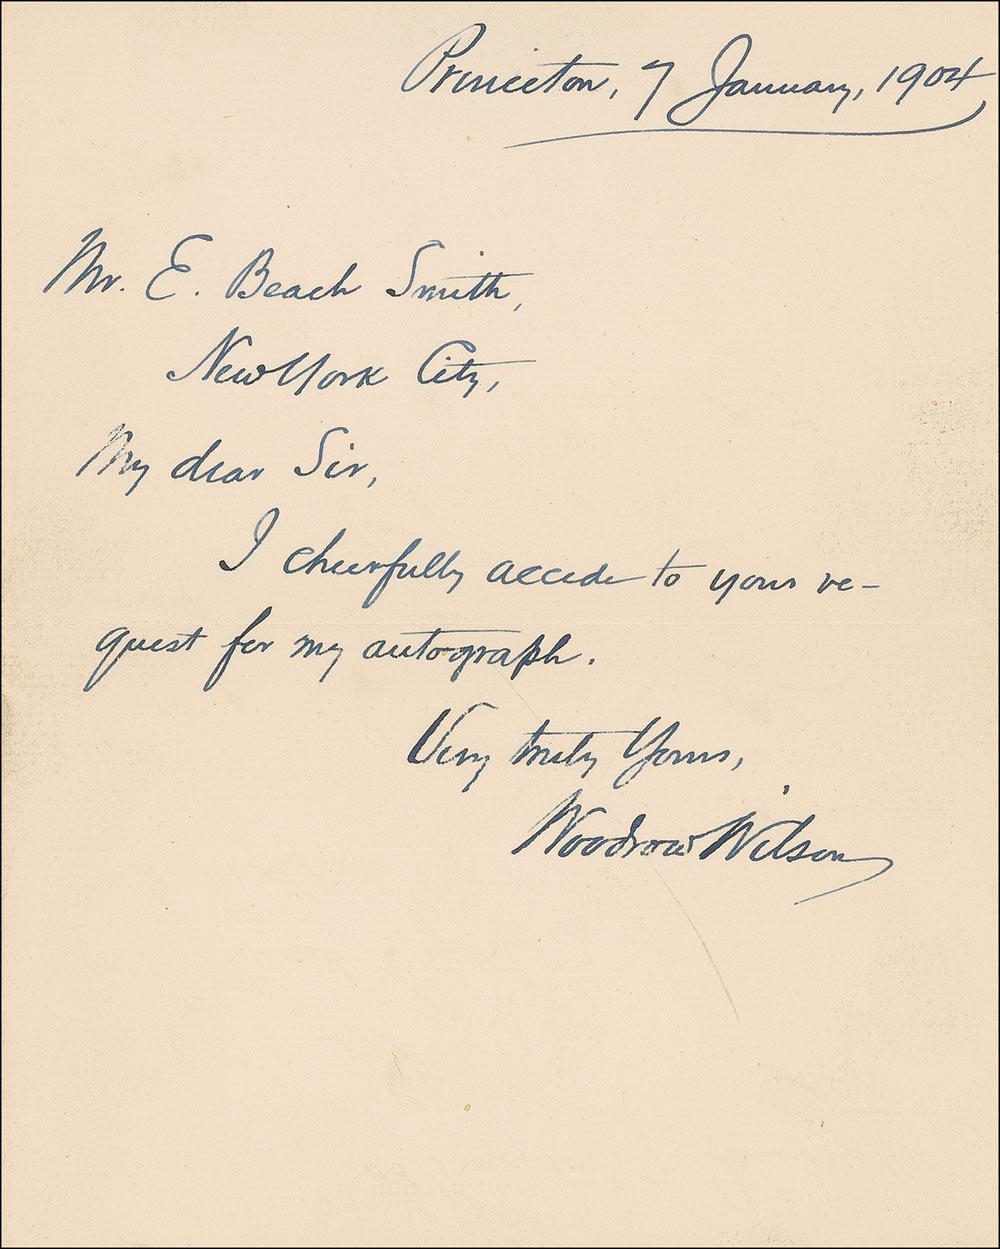 Princeton, 7 January, 1904
Mr. E. Beach Smith,
New York City,
My dear Sir,
I cheerfully accede to your re-
quest for my autograph.
Very truly Yours,
Woodrow Wilson